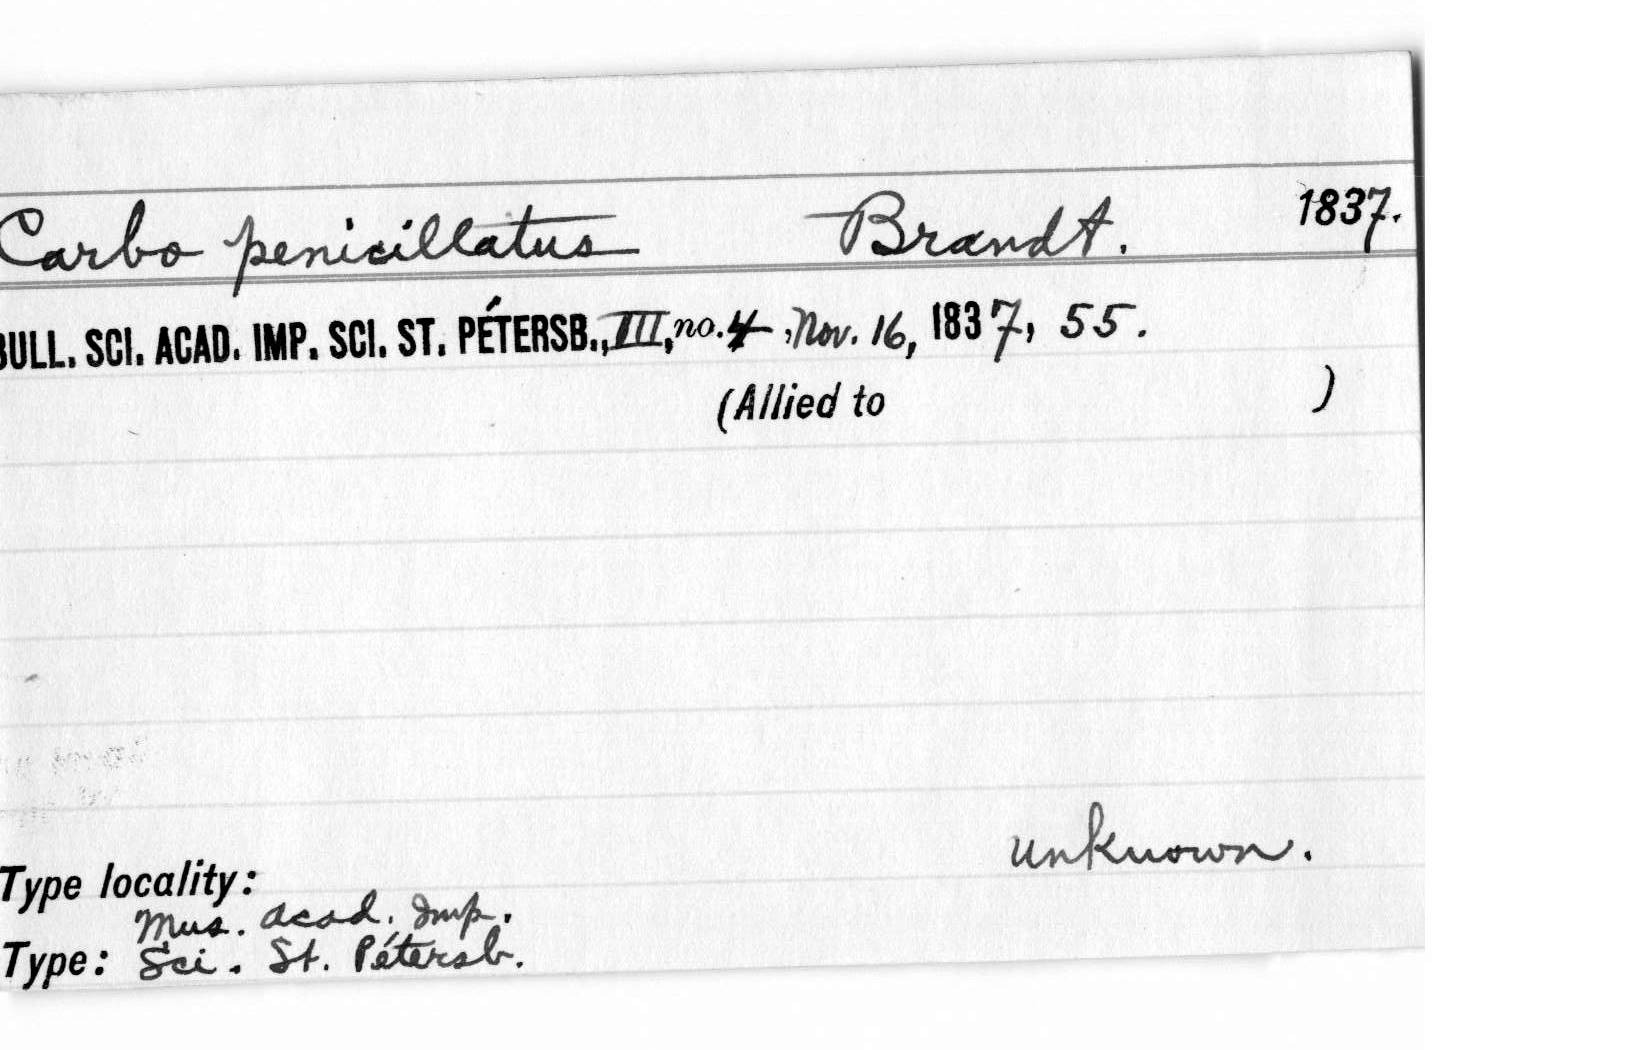 Carbo penicillatus Brandt. 1837.
BULL. SCI. ACAD. IMP. SCI. ST. PÉTERSB., III, no. 4, Nov. 16, 1837, 55.
(Allied to )
unknown.
Type locality:
Mus. Acad. Imp.
Type: Sci. St. Pétersb.